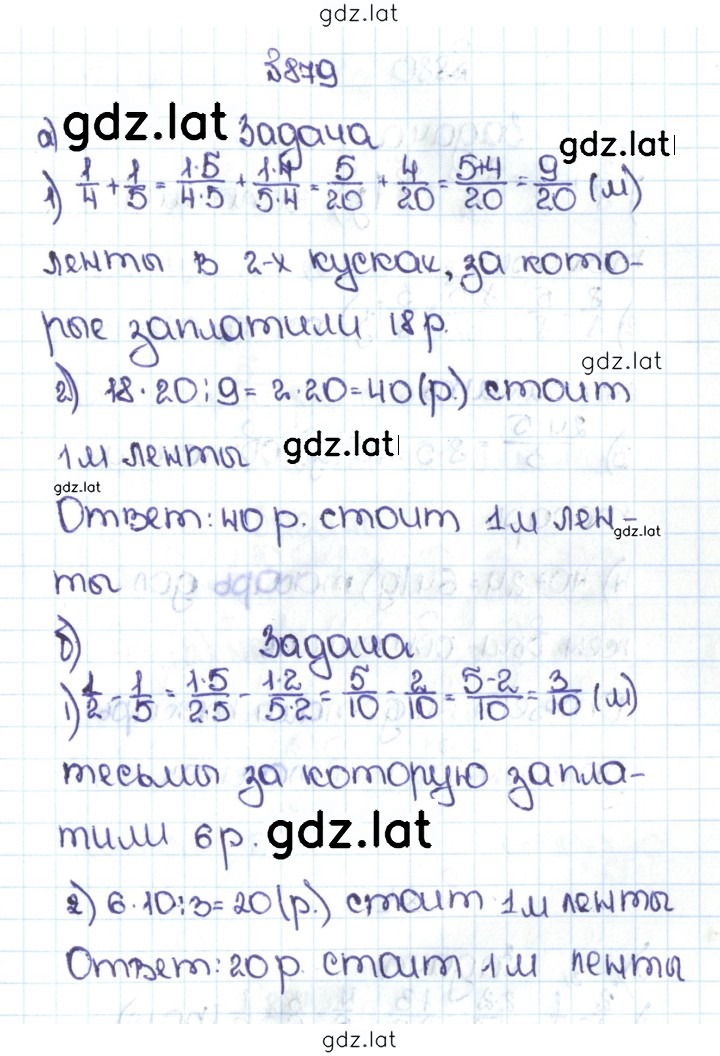 gdz.lat
№879
а) gdz.lat Задача gdz.lat
1) 1/4 + 1/5 = 1·5/4·5 + 1·4/5·4 = 5/20 + 4/20 = 5+4/20 = 9/20 (м)
ленты в 2-х кусках, за кото-
рые заплатили 18 р.
gdz.lat
2) 18·20:9=2·20=40(р.) стоит
1 м ленты gdz.lat
gdz.lat
Ответ: 40 р. стоит 1 м лен-
gdz.lat
ты
б) Задача
1) 1/2 - 1/5 = 1·5/2·5 - 1·2/5·2 = 5/10 - 2/10 = 5-2/10 = 3/10 (м)
тесьмы за которую запла-
тили 6 р. gdz.lat
2) 6·10:3=20(р.) стоит 1 м ленты
Ответ: 20 р. стоит 1 м ленты
gdz.lat